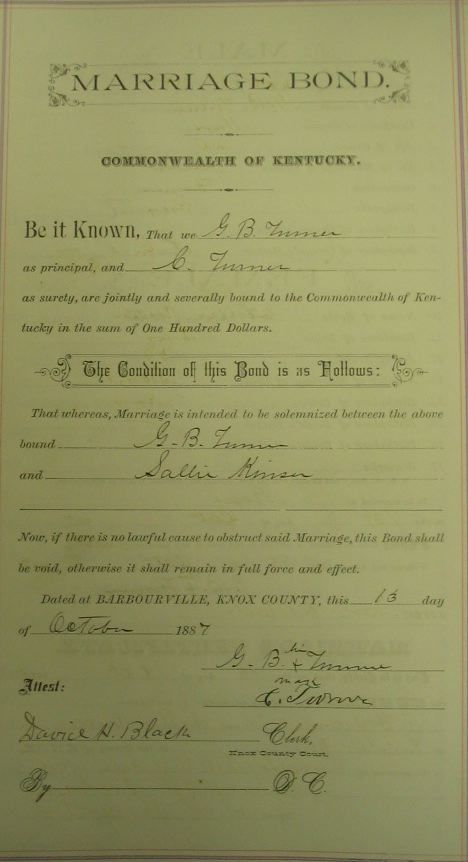 MARRIAGE BOND.
COMMONWEALTH OF KENTUCKY.
Be it Known, That we G. B. Turner
as principal, and C. Turner
as surety, are jointly and severally bound to the Commonwealth of Ken-
tucky in the sum of One Hundred Dollars.
The Condition of this Bond is as Follows:
That whereas, Marriage is intended to be solemnized between the above
bound G. B. Turner
and Sallie Kinser
Now, if there is no lawful cause to obstruct said Marriage, this Bond shall
be void, otherwise it shall remain in full force and effect.
Dated at BARBOURVILLE, KNOX COUNTY, this 13 day
of October 1887
his
G. B. x Turner
mark
Attest:
C. Turner
David H. Black Clerk,
Knox County Court.
By D. C.